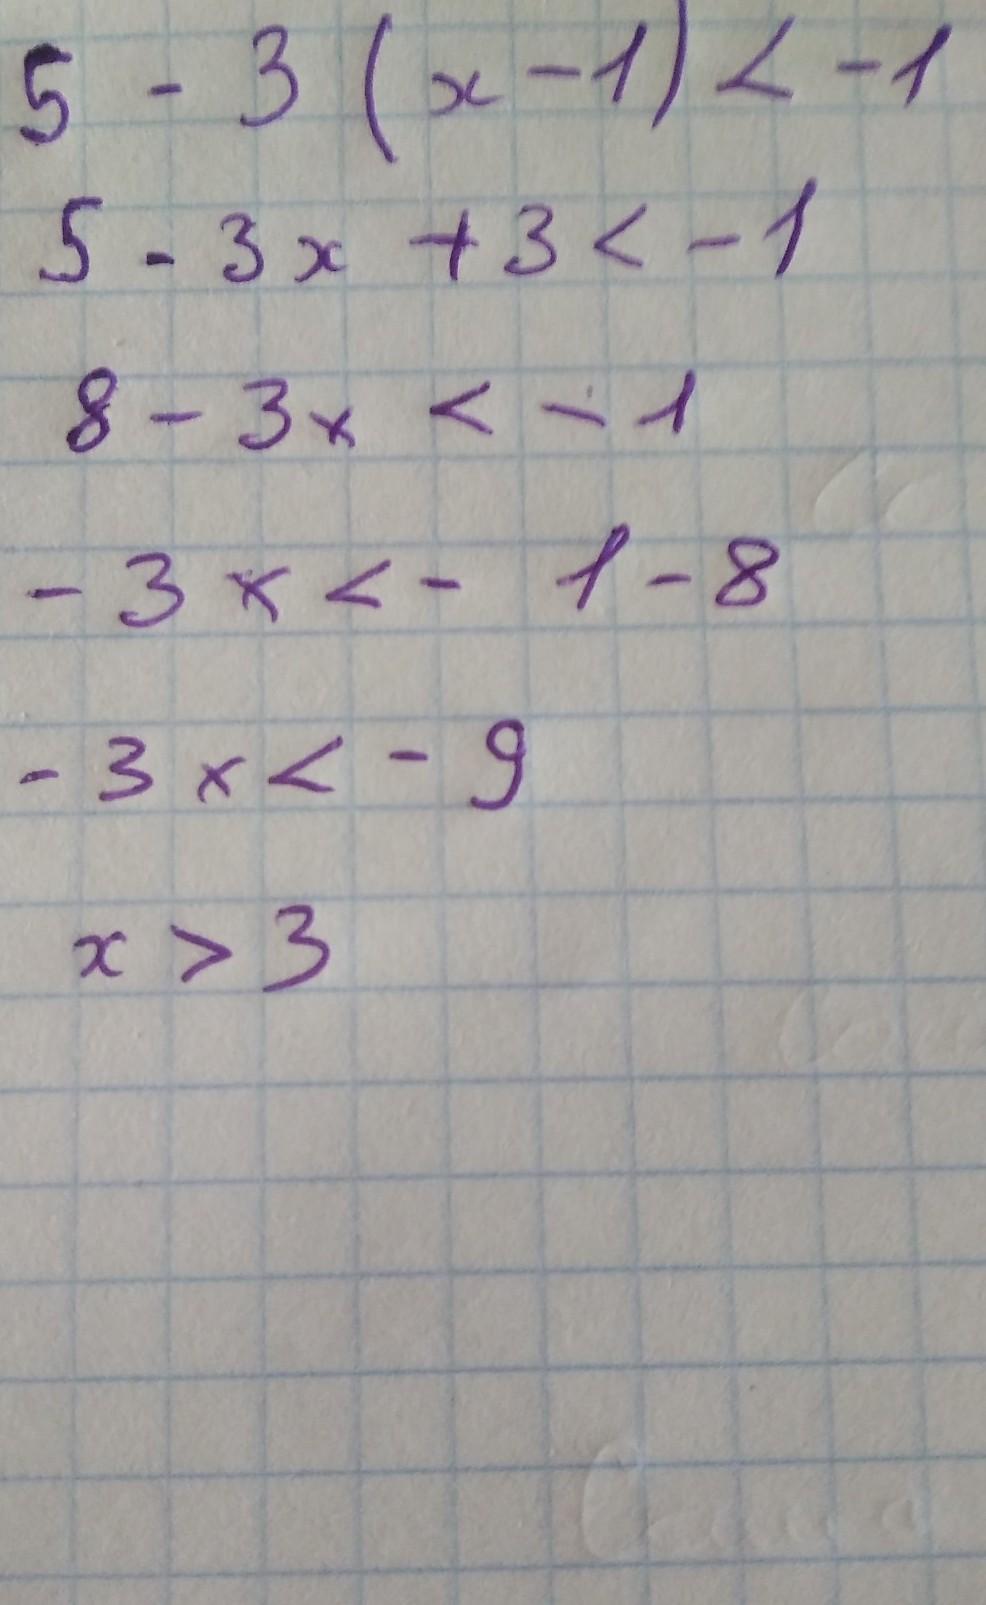 5 - 3 (x - 1) < - 1
5 - 3x + 3 < - 1
8 - 3x < - 1
- 3x < - 1 - 8
- 3x < - 9
x > 3